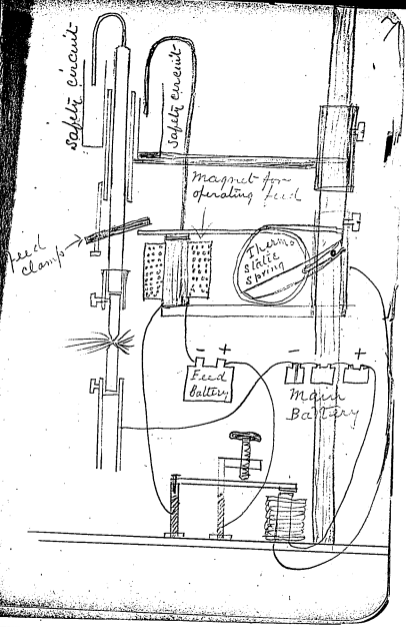 safety circuit
safety circuit
magnet for
operating feed
feed
clamp
Thermo
static
spring
- +
Feed
Battery
- +
Main
Battery